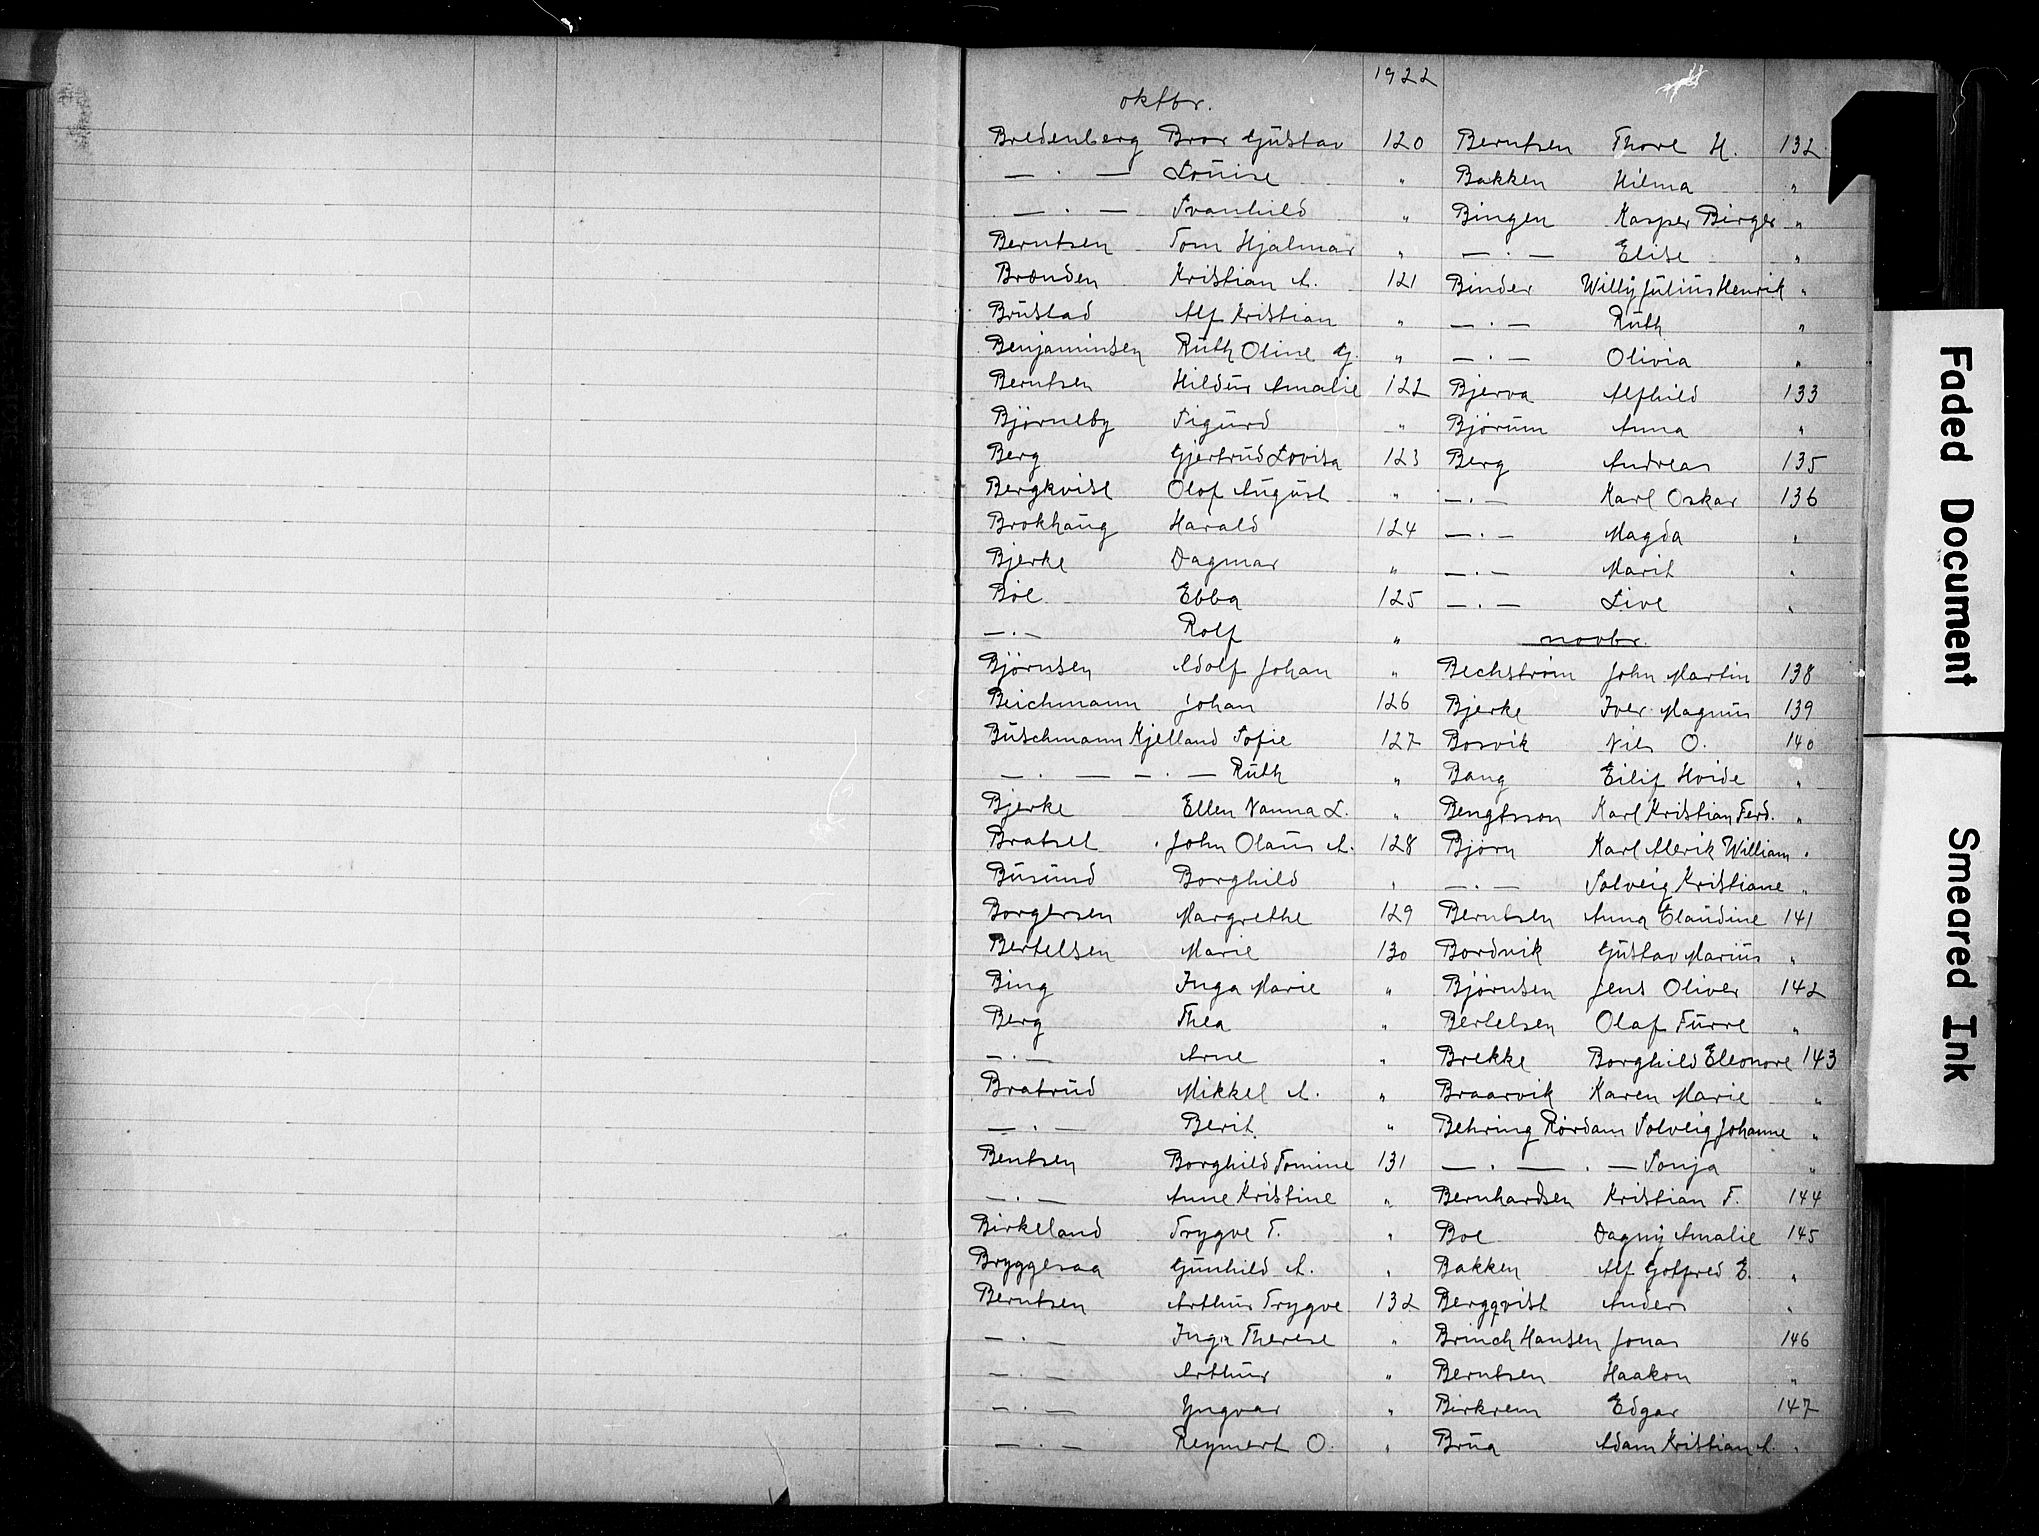 1922
oktbr.
Bredenberg Bror Gustav 120
— . — Louise "
— . — Svanhild "
Berntsen Tom Hjalmar "
Brænden Kristian A. 121
Brustad Alf Kristian "
Benjaminsen Ruth Oline G. "
Berntsen Hildur Amalie 122
Bjørneby Sigurd "
Berg Gjertrud Lovisa 123
Bergkvist Olof August "
Brokhaug Harald 124
Bjerke Dagmar "
Böe Ebba 125
— . — Rolf "
Bjørnsen Adolf Johan "
Beichmann Johan 126
Buschmann Kjelland Sofie 127
— . — — . — Ruth "
Bjerke Ellen Nanna L. "
Bratset John Olaus A. 128
Busund Borghild "
Borgersen Margrethe 129
Bertelsen Marie 130
Bing Inga Marie "
Berg Thea "
— . — Arne "
Bratrud Mikkel A. "
— . — Berit "
Bentsen Borghild Tomine 131
— . — Anne Kristine "
Birkeland Trygve T. "
Bryggesaa Gunhild A. "
Berntsen Arthur Trygve 132
— . — Inga Therese "
— . — Arthur "
— . — Yngvar "
— . — Reymert O. "
Berntsen Thore H. 132
Bakken Hilma "
Bingen Kasper Birger "
— . — Elise "
Binder Willy Julius Henrik "
— . — Ruth "
— . — Olivia "
Bjerva Alfhild 133
Bjørum Anna "
Berg Andreas 135
— . — Karl Oskar 136
— . — Magda "
— . — Marit "
— . — Live "
novbr.
Bechstrøm John Martin 138
Bjerke Iver Magnus 139
Bosvik Nils O. 140
Bang Eilif Hvide "
Bengtsson Karl Kristian Ferd. "
Bjørn Karl Alerik William "
— . — Solveig Kristiane "
Berntsen Anna Claudine 141
Bordvik Gustav Marius "
Bjørnsen Jens Oliver 142
Bertelsen Olaf Furre "
Brekke Borghild Eleonore 143
Braarvik Karen Marie "
Behring Rørdam Solveig Johanne "
— . — . — Sonja "
Bernhardsen Kristian F. 144
Boe Dagny Amalie 145
Bakken Alf Gotfred E. "
Bergqvist Anders "
Brinch Hansen Jonas 146
Berntsen Haakon "
Birkrem Edgar 147
Brua Adam Kristian A. "
Faded Document
Smeared Ink